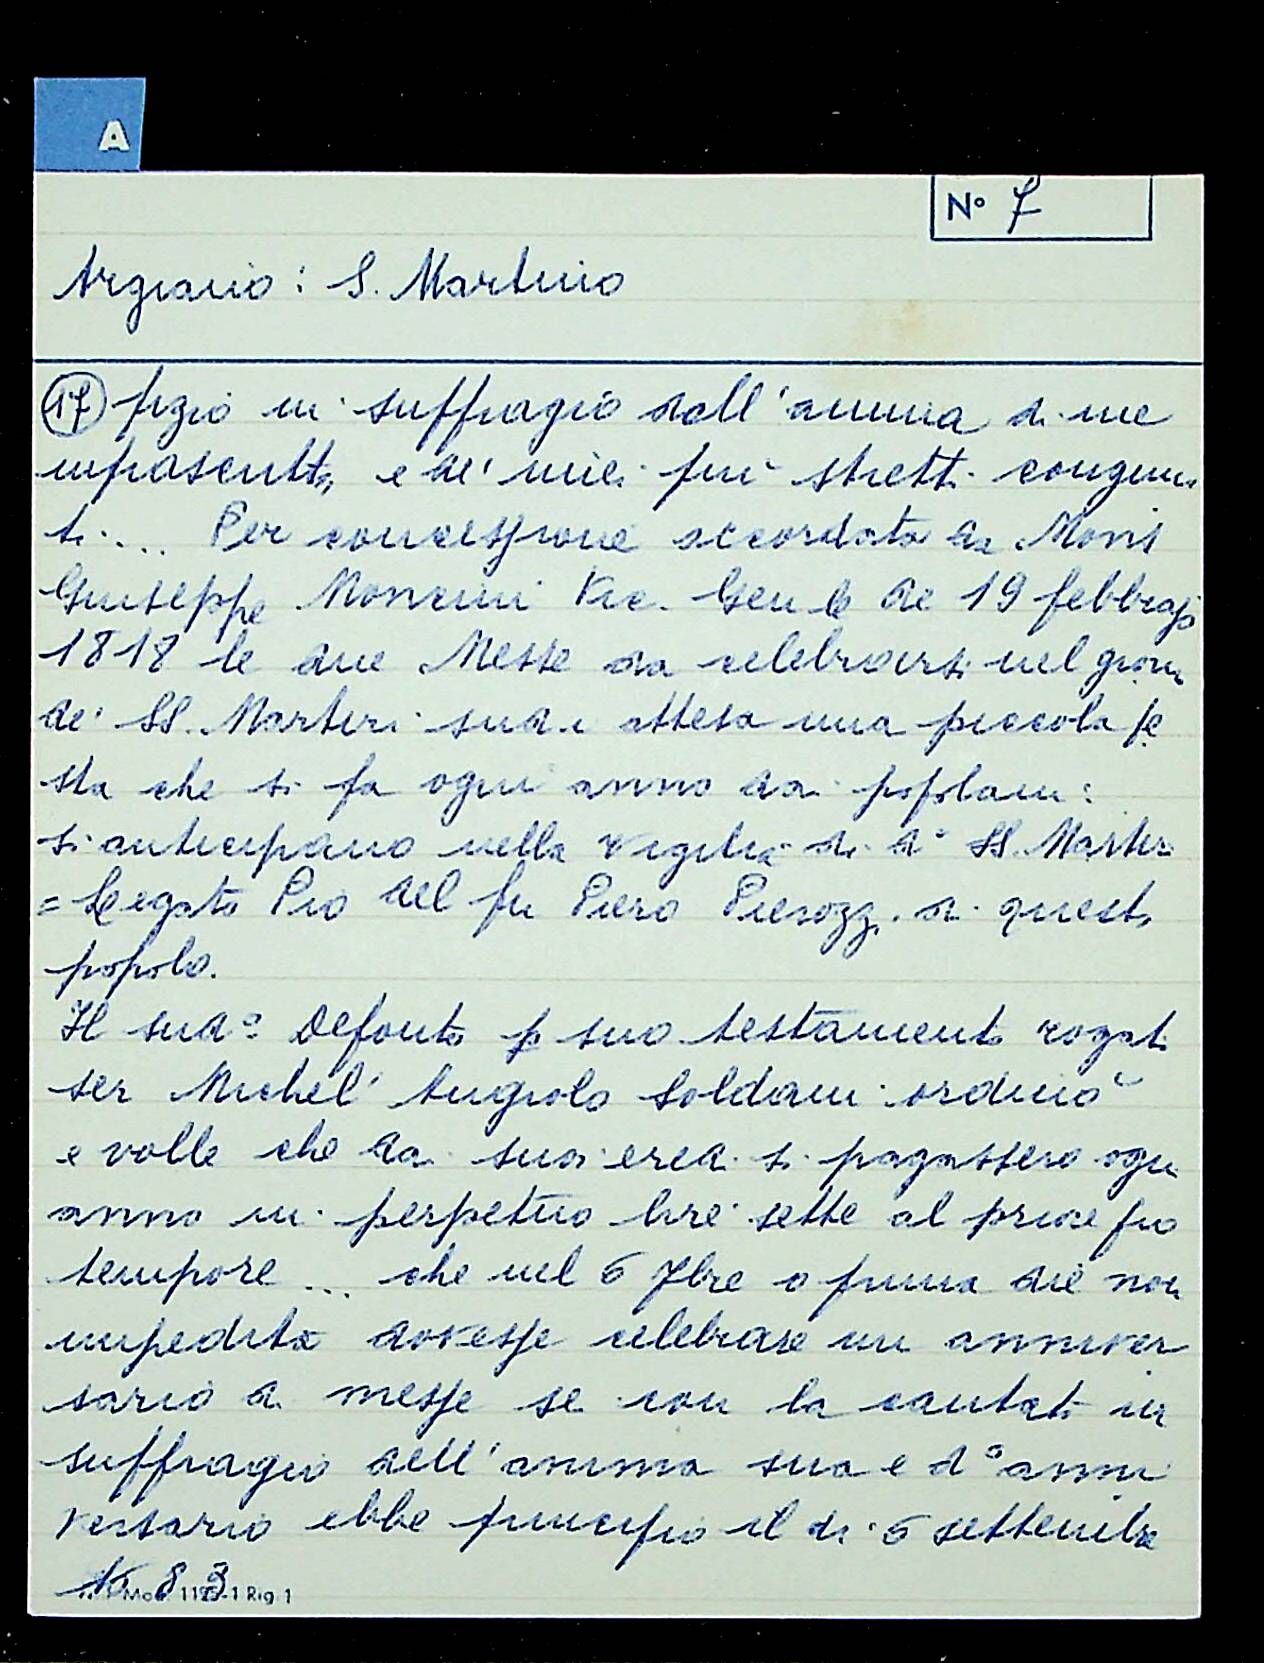 A
N° 7
Argiano: S. Martino
(17) fizio in suffragio dell'anima di me
infrascritto, e de' miei più stretti congiun
ti.... Per concessione accordata da Mons
Giuseppe Mancini Vic. Gen le de 19 febbrajo
1818 le due Messe da celebrarsi nel giorn
de' SS. Martiri sud.i attesa una piccola fe
sta che si fa ogni anno dai popolani:
si anticipano nella vigilia di d.i SS. Martir
= Legato Pio del fu Piero Pierozzi di questo
popolo.
Il sud° Defonto p suo testamento rogato
ser Michel'Angiolo Soldani ordinò
e volle che dai suoi eredi si pagassero ogni
anno in perpetuo lire sette al priore pro
tempore ... che nel 6 7bre o prima die non
impedita dovesse celebrare un anniver
sario di messe sei con la cantata in
suffragio dell'anima sua e d° anni
versario ebbe principio il dì 6 settembre
Mod. 1125-1 Rig. 1